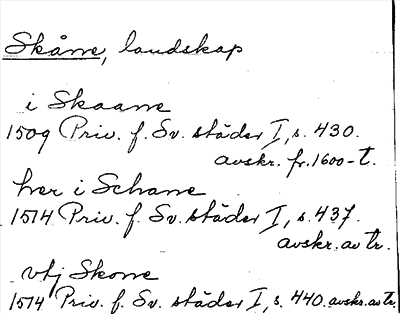 Skåne, landskap
i Skaane
1509 Priv. f. Sv. städer I, s. 430.
avskr. fr. 1600-t.
her i Schane
1514 Priv. f. Sv. städer I, s. 437.
avskr. av tr.
vtj Skone
1514 Priv. f. Sv. städer I, s. 440. avskr. av tr.